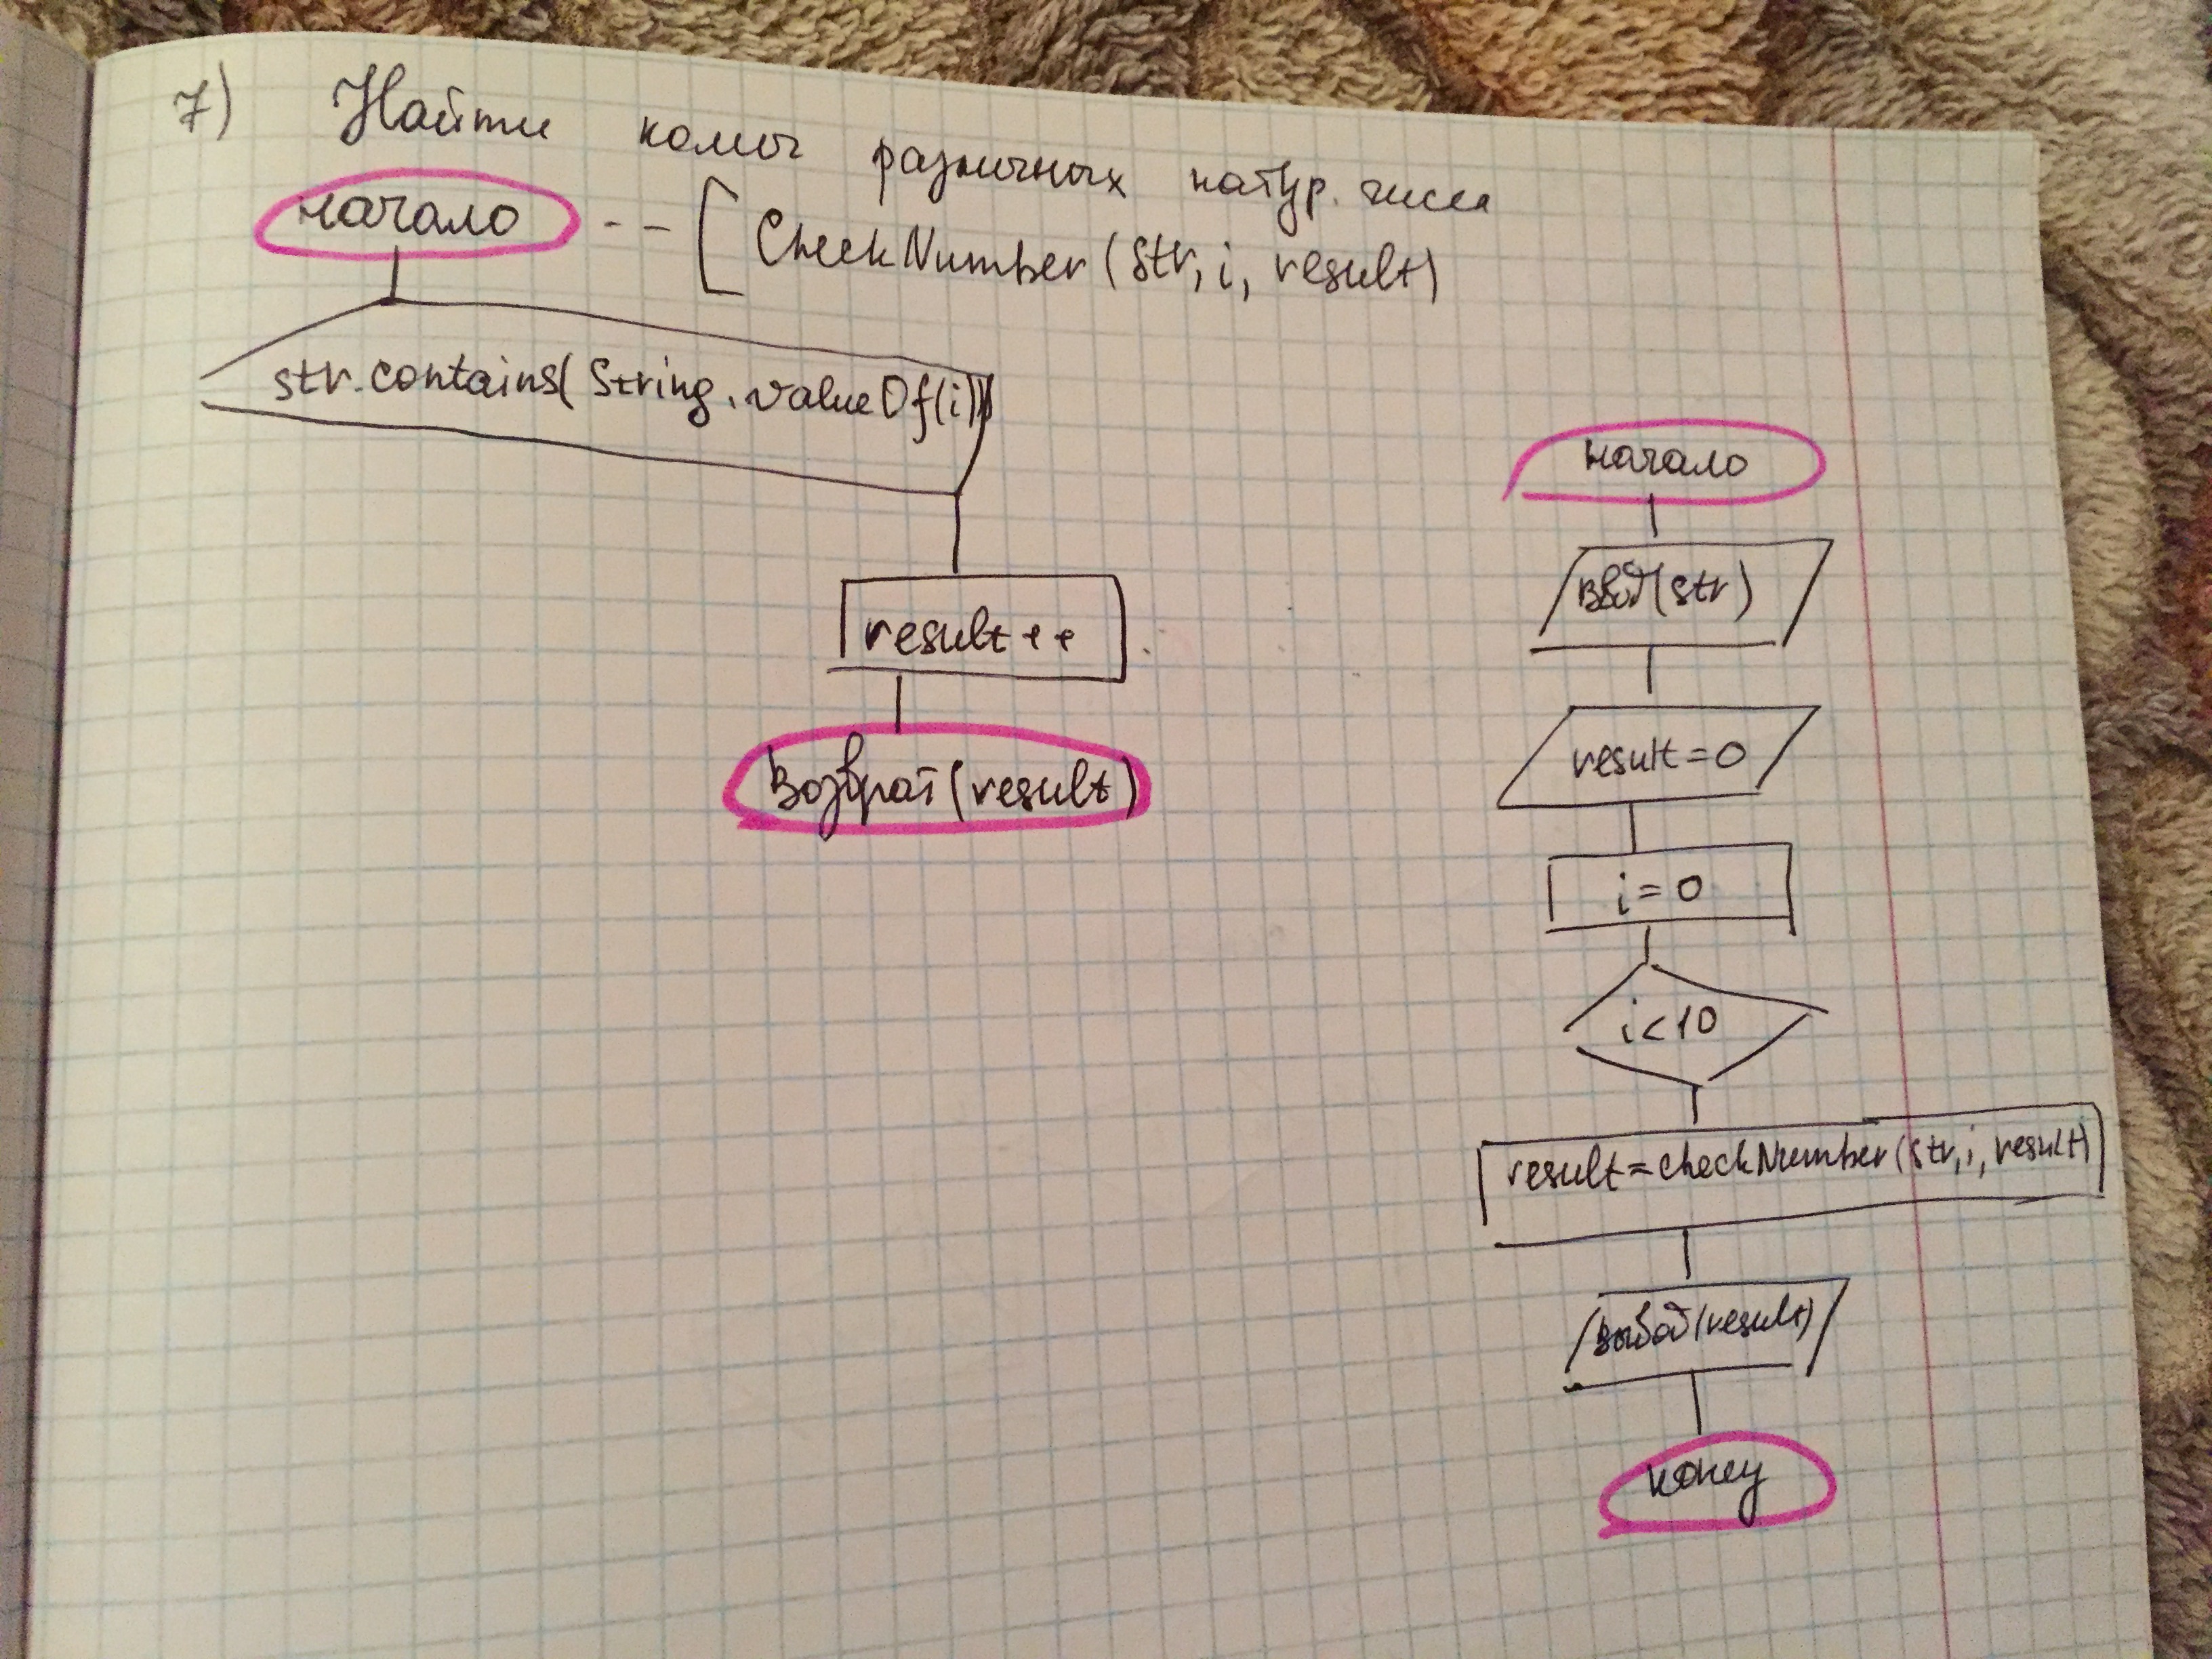 7) Найти колич различных натур. чисел
начало -- [ CheckNumber (str, i, result)
str.contains(String.valueOf(i))
result++
Возврат (result)
начало
ввод (str)
result = 0
i = 0
i < 10
result = checkNumber (str, i, result)
вывод (result)
конец